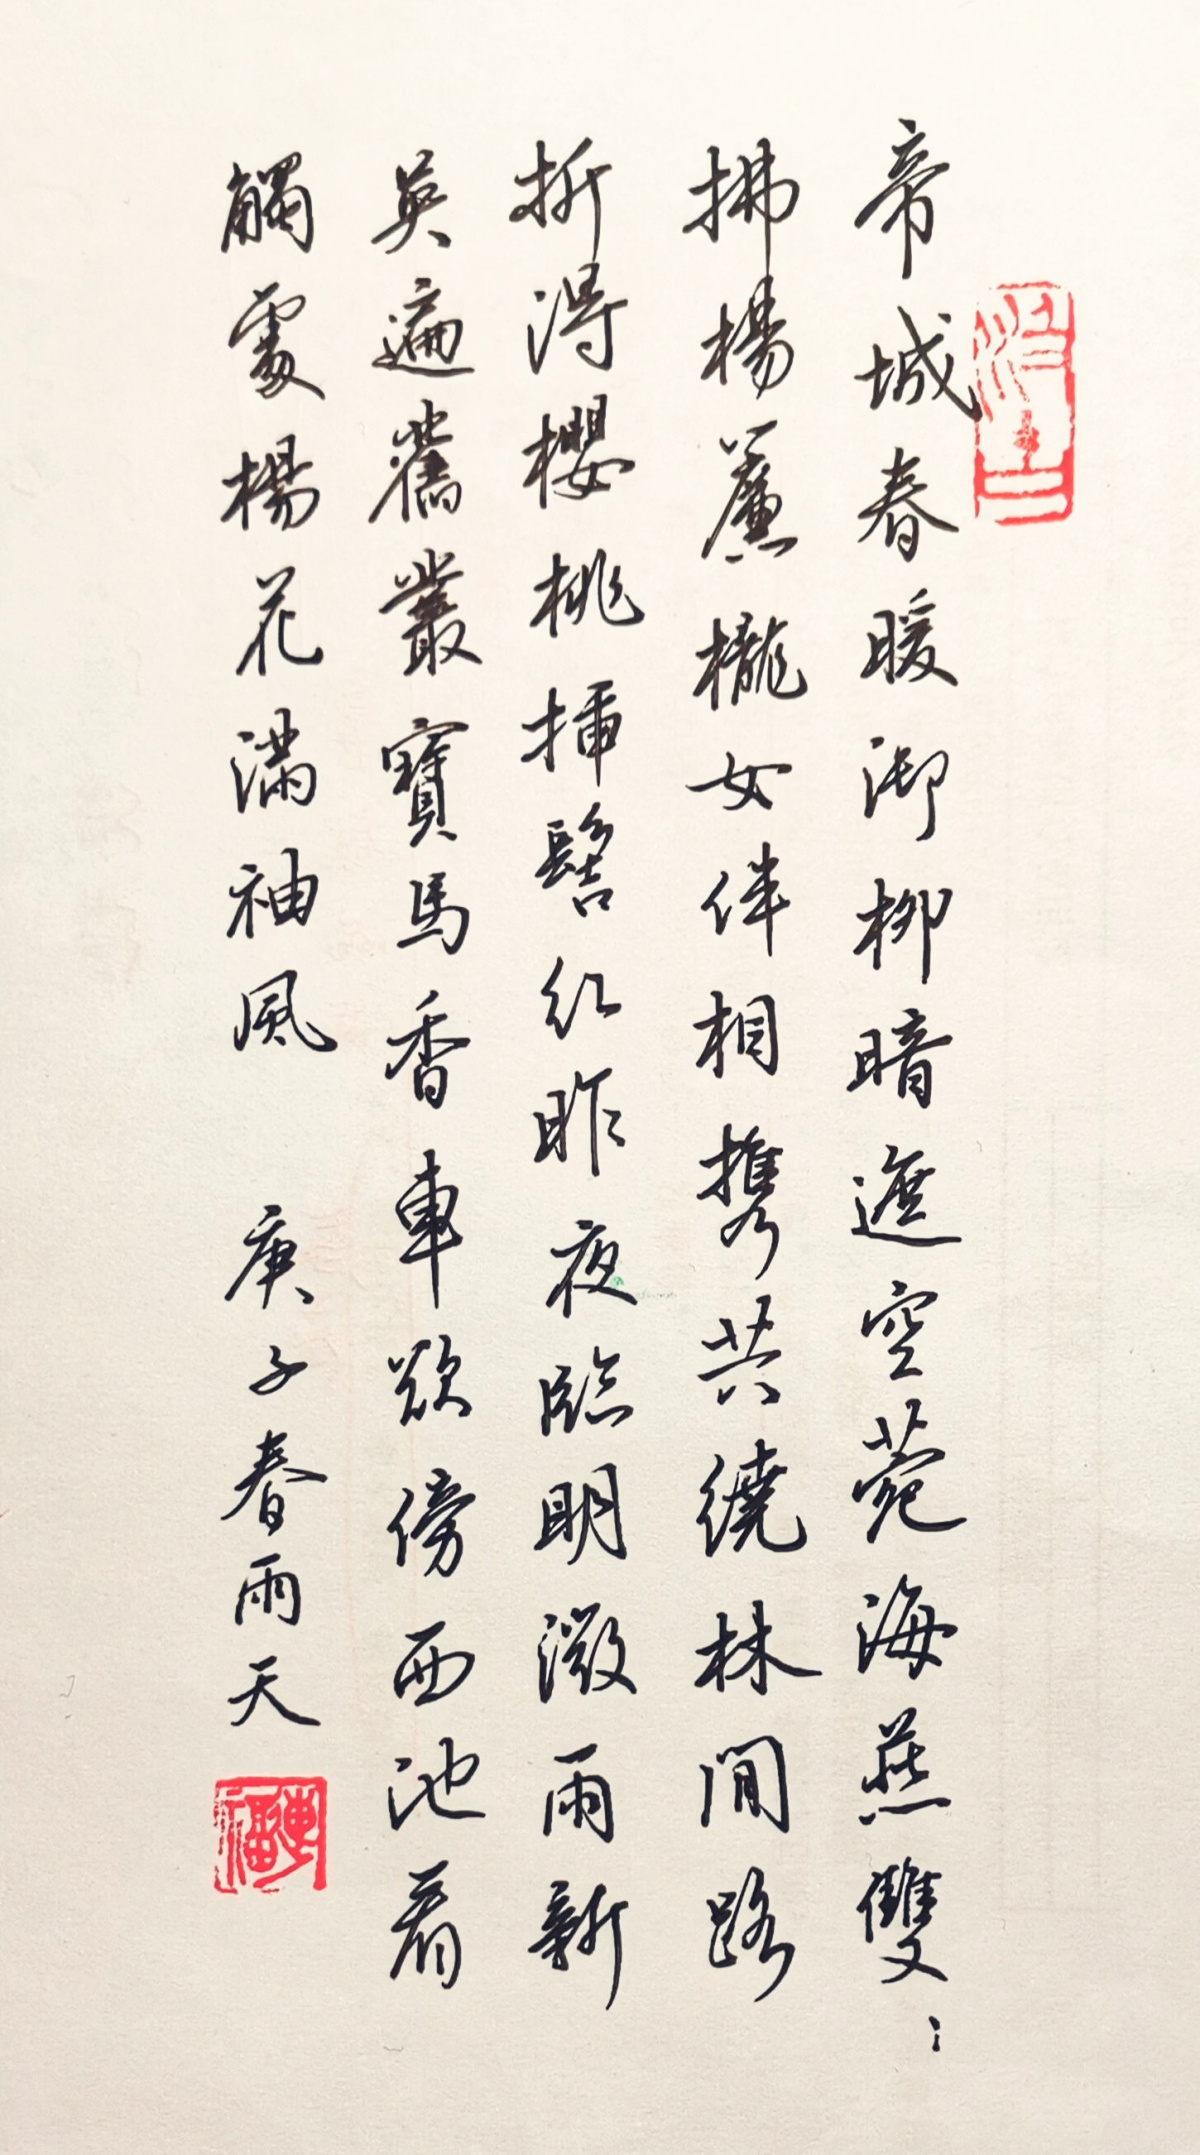 帝城春暖御柳暗遮空苑海燕雙〻
拂楊簾櫳女伴相携共繞林間路
折得櫻桃插髻紅昨夜臨明微雨新
英遍舊叢寶馬香車欲傍西池看
觸處楊花滿袖風 庚子春雨天